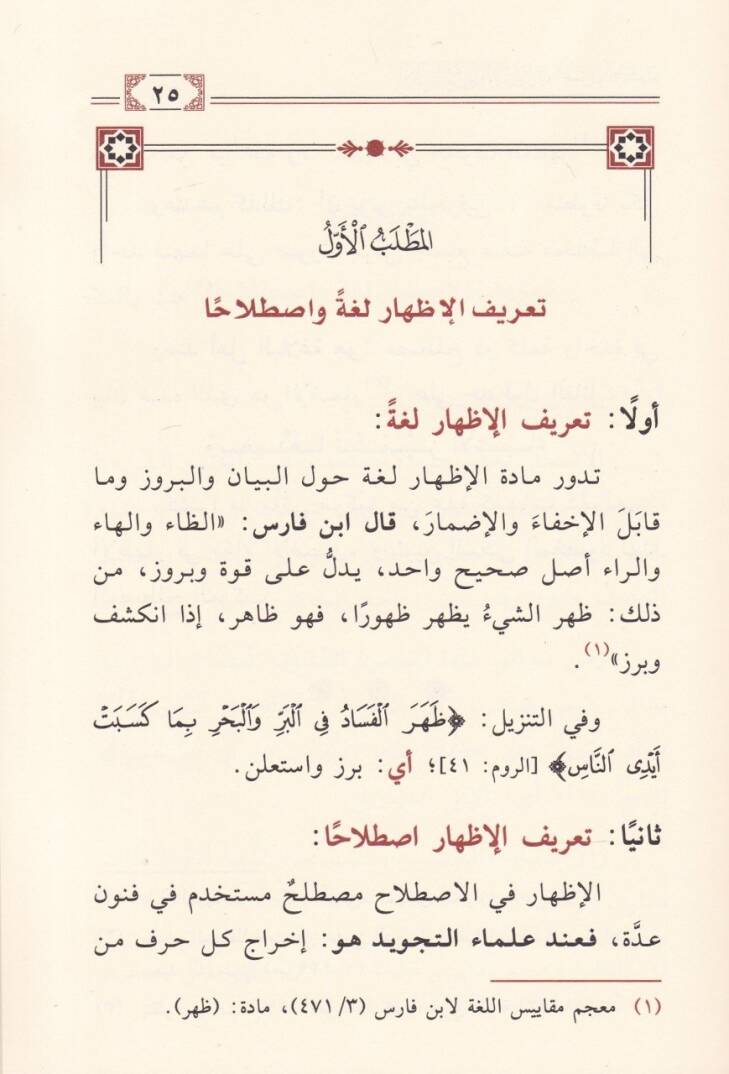 ٢٥
المَطْلَبُ الْأَوَّلُ
تعريف الإظهار لغةً واصطلاحًا
أولًا: تعريف الإظهار لغةً:
تدور مادة الإظهار لغة حول البيان والبروز وما
قابَلَ الإخفاءَ والإضمارَ، قال ابن فارس: «الظاء والهاء
والراء أصل صحيح واحد، يدلُّ على قوة وبروز، من
ذلك: ظهر الشيءُ يظهر ظهورًا، فهو ظاهر، إذا انكشف
وبرز»(١).
وفي التنزيل: ﴿ظَهَرَ ٱلْفَسَادُ فِي ٱلْبَرِّ وَٱلْبَحْرِ بِمَا كَسَبَتْ
أَيْدِى ٱلنَّاسِ﴾ [الروم: ٤١]؛ أي: برز واستعلن.
ثانيًا: تعريف الإظهار اصطلاحًا:
الإظهار في الاصطلاح مصطلحٌ مستخدم في فنون
عدَّة، فعند علماء التجويد هو: إخراج كل حرف من
(١) معجم مقاييس اللغة لابن فارس (٣/ ٤٧١)، مادة: (ظهر).